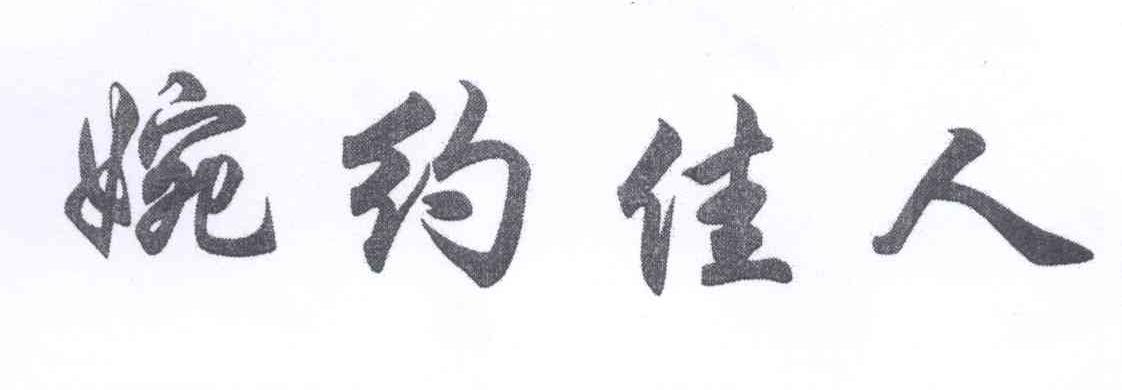 婉约佳人